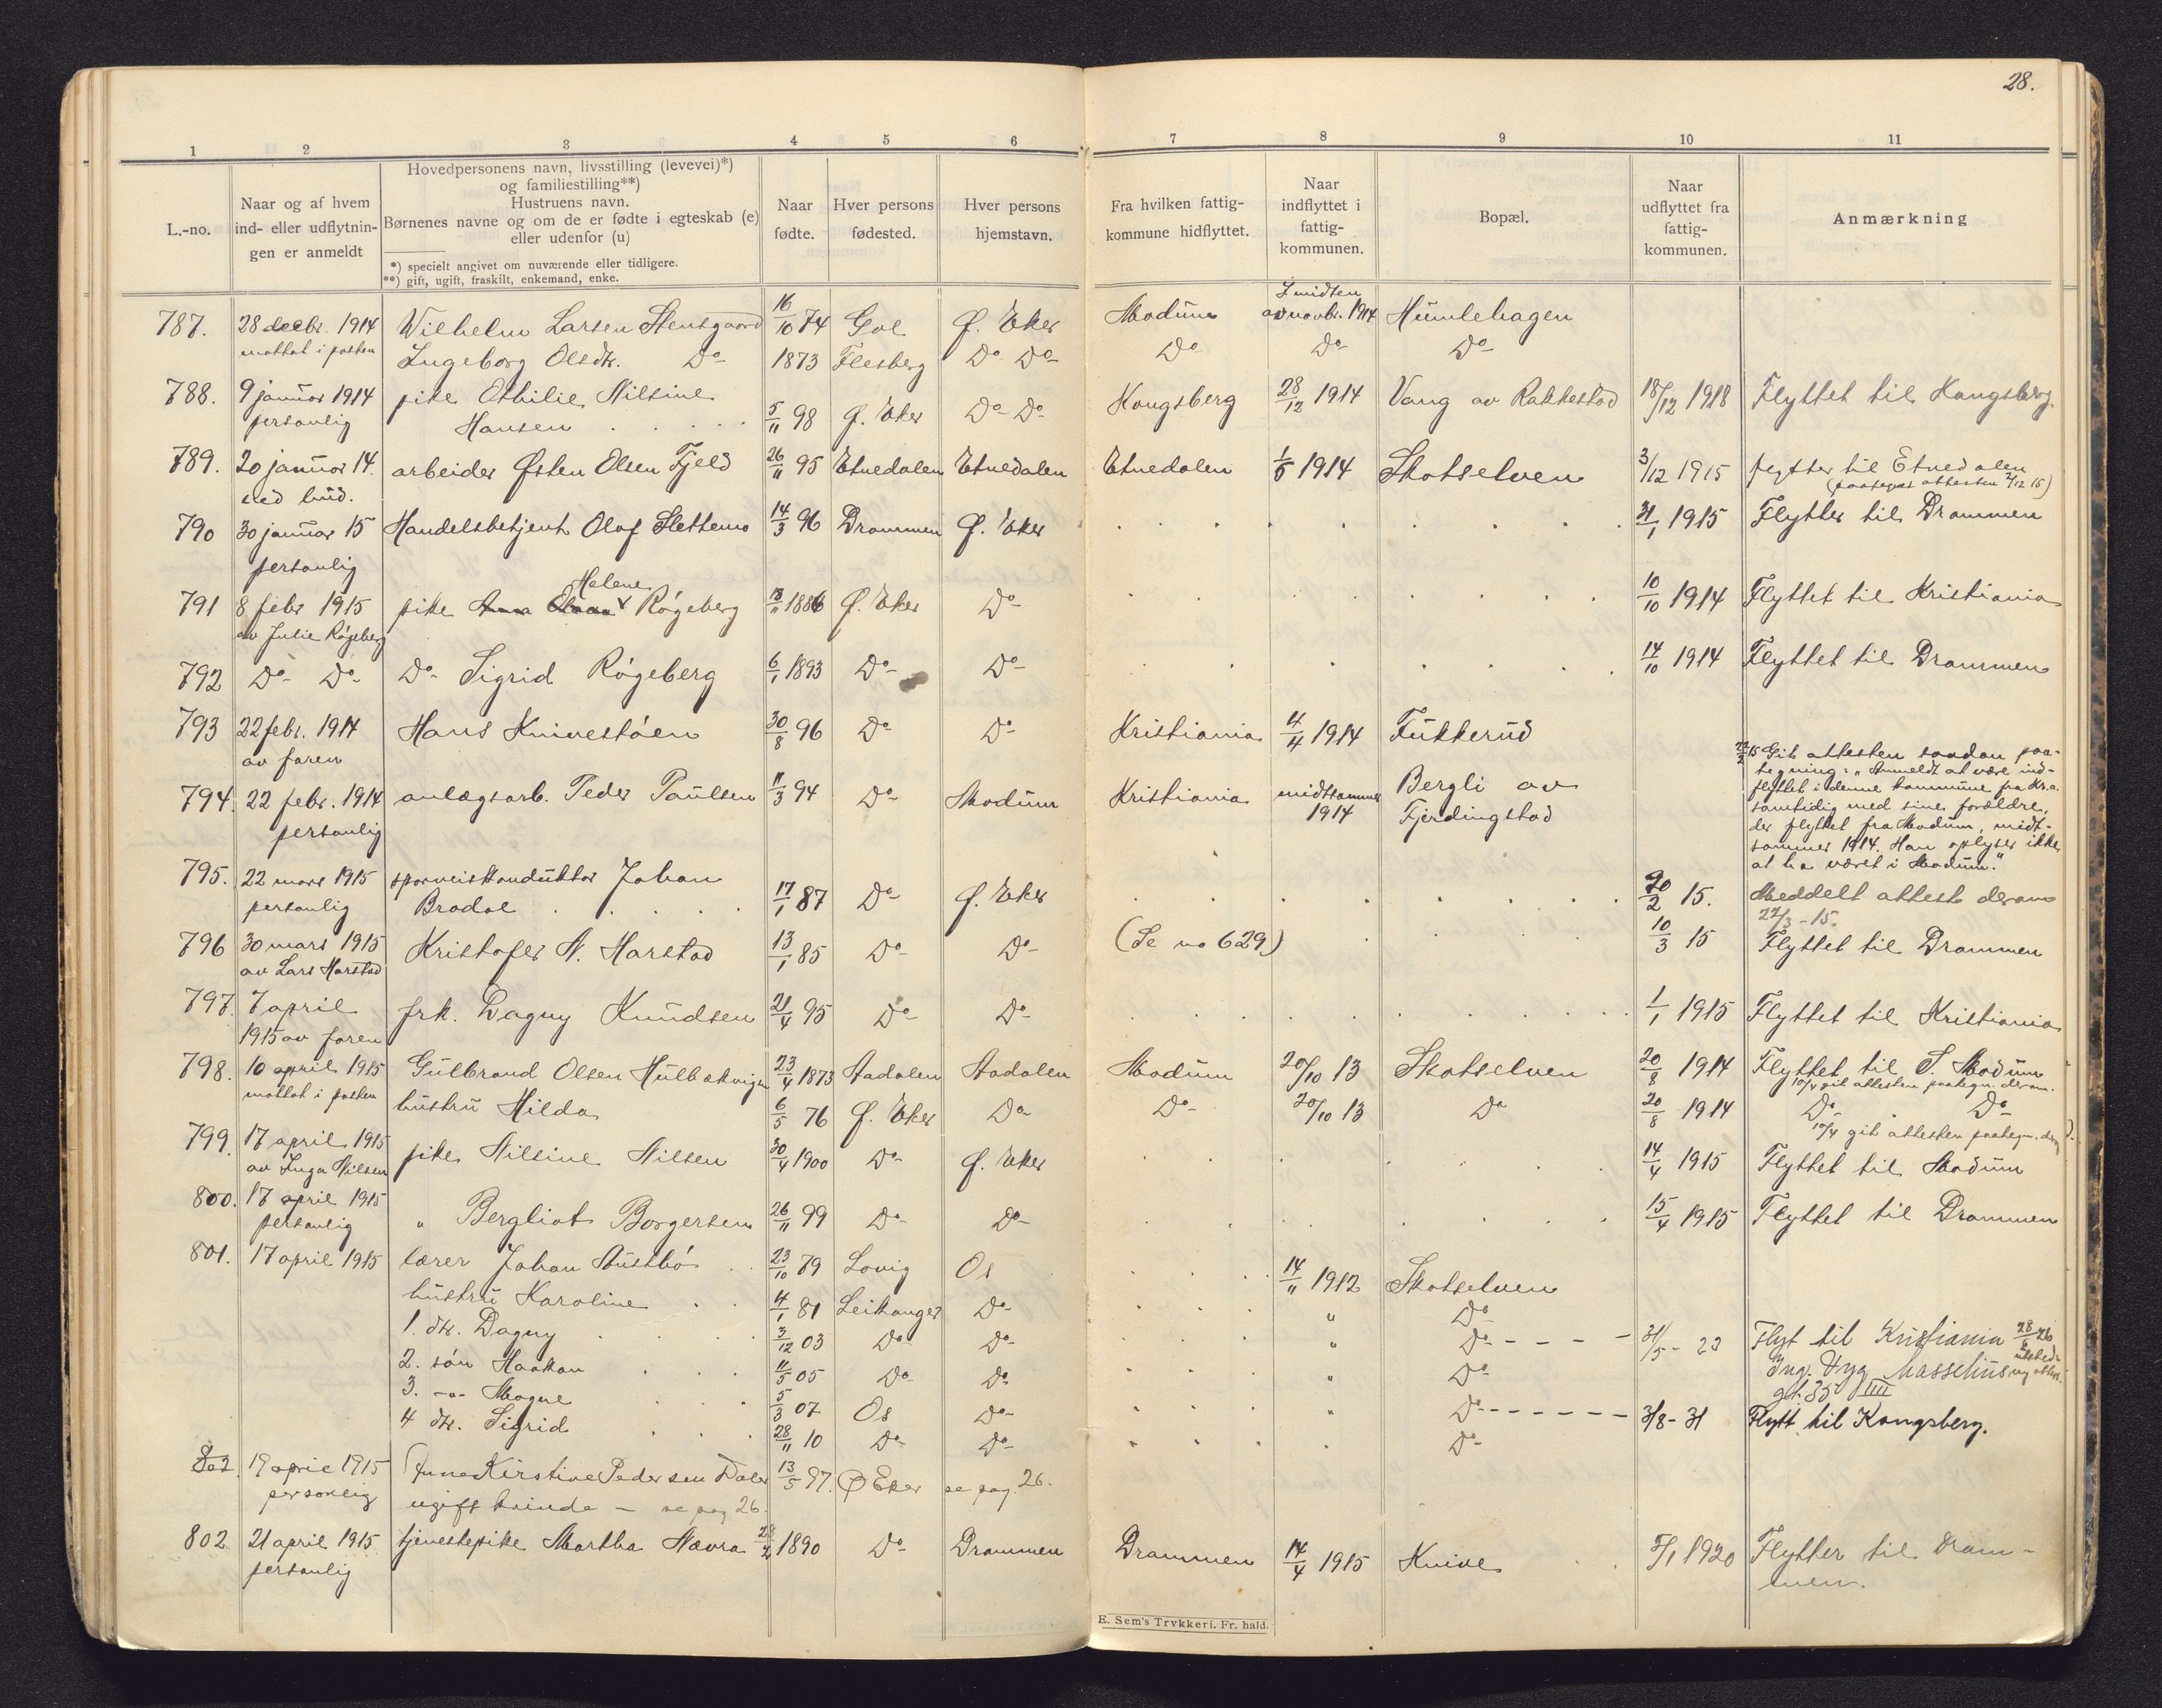 28.
1 2 3 4 5 6 7 8 9 10 11
L.-no.
Naar og af hvem
ind- eller udflytnin-
gen er anmeldt
Hovedpersonens navn, livsstilling (levevei)*)
og familiestilling**)
Hustruens navn.
Børnenes navne og om de er fødte i egteskab (e)
eller udenfor (u)
*) specielt angivet om nuværende eller tidligere.
**) gift, ugift, fraskilt, enkemand, enke.
Naar
fødte.
Hver persons
fødested.
Hver persons
hjemstavn.
Fra hvilken fattig-
kommune hidflyttet.
Naar
indflyttet i
fattig-
kommunen.
Bopæl.
Naar
udflyttet fra
fattig-
kommunen.
Anmærkning
787. 28 decbr. 1914 Wilhelm Larsen Stensgaard 16/10 74 Gol Ø. Eker Modum I midten av novbr. 1914 Humlehagen
mottat i posten Ingeborg Olsdtr. Do 1873 Flesberg Do Do Do Do Do
788. 9 januar 1914 pike Othilie Nilsine
personlig Hansen 5/11 98 Ø. Eker Do Do Kongsberg 28/12 1914 Vang av Rakkestad 18/12 1918 Flyttet til Kongsberg.
789. 20 januar 14. arbeider Østen Olsen Fjeld 26/11 95 Etnedalen Etnedalen Etnedalen 1/5 1914 Skotselven 3/12 1915 flytter til Etnedalen
ved bud. (paategnet attesten 2/12 15)
790 30 januar 15 Handelsbetjent Olaf Slettemo 14/3 96 Drammen Ø. Eker 31/1 1915 Flytter til Drammen
personlig
Helene
791 8 febr 1915 pike Anna Røgeberg 1886 Ø. Eker Do 10/10 1914 Flyttet til Kristiania
av Julie Røgeberg
792 Do Do Do Sigrid Røgeberg 6/1 1893 Do Do 14/10 1914 Flyttet til Drammen
793 22 febr. 1914 Hans Knivestøen 30/8 96 Do Do Kristiania 4/4 1914 Fukkerud
av faren
794. 22 febr. 1914 anlægsarb. Peder Paulsen 11/3 94 Do Modum Kristiania midtsommer Bergli av
personlig 1914 Fjerdingstad
22/2 15 Git attesten saadan paa-
tegning: "Anmeldt at være ind-
flyttet i denne kommune fra Kr.a.
samtidig med sine forældre,
der flyttet fra Modum, midt-
sommer 1914. Han oplyser ikke
at ha været i Modum."
795. 22 mars 1915 sporveiskonduktør Johan
personlig Bradal 17/1 87 Do Ø. Eker 20/2 15. Meddelt attest derom
22/3 - 15.
796 30 mars 1915 Kristofer N. Harstad 13/1 85 Do Do (Se no 629) 10/3 15 Flyttet til Drammen
av Lars Harstad
797. 7 april frk. Dagny Knudsen 21/4 95 Do Do 1/1 1915 Flyttet til Kristiania
1915 av faren
798. 10 april 1915 Gulbrand Olsen 23/4 1873 Aadalen Aadalen Modum 20/10 13 Skotselven 20/8 1914 Flyttet til S. Modum
10/4 git attesten paategn. derom.
mottat i posten hustru Hilda 6/5 76 Ø. Eker Do Do 20/10 13 Do 20/8 1914 Do Do
10/4 git attesten paategn.
799. 17 april 1915 pike Nilsine Nilsen 30/4 1900 Do Ø. Eker 14/4 1915 Flyttet til Modum
av Inga Nilsen
800. 17 april 1915 " Bergliot Borgersen 26/11 99 Do Do 15/4 1915 Flyttet til Drammen
personlig
801. 17 april 1915 lærer Johan Austbø 23/10 79 Os 14/11 1912 Skotselven
hustru Karoline 4/1 81 Leikanger Do " Do
1. dtr. Dagny 3/12 03 Do Do " Do 31/5 - 23 Flyt til Kristiania 28/6 26
2. søn Haakon 11/5 05 Do Do " Do
3. -"- Magne 5/3 07 Os Do " Do 31/8 - 31 Flytt til Kongsberg.
4 dtr. Sigrid 28/11 10 Do Do " Do
802. 19 april 1915 Anne Kirstine Pedersen Daler 13/5 97. Ø Eker se pag. 26.
personlig ugift kvinde - se pag 26.
802 21 april 1915 tjenestepike Martha Nævra 28/2 1890 Do Drammen Drammen 14/4 1915 Knive 5/1 1920 Flytter til Dram-
personlig men.
E. Sem's Trykkeri. Fr. hald.